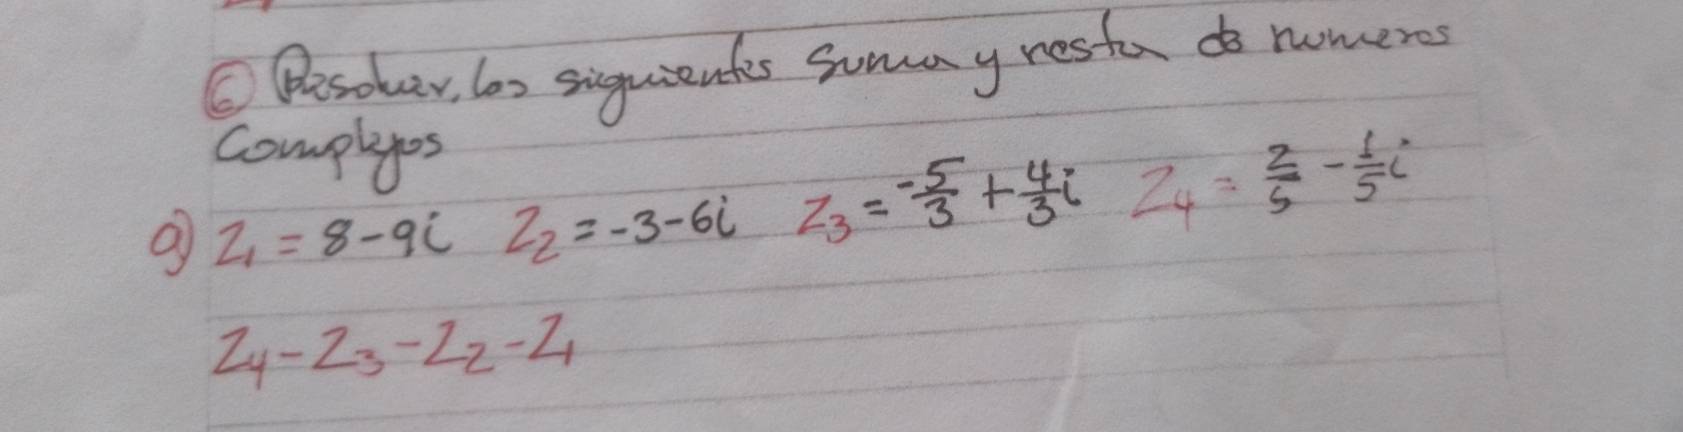 C Resolver, los siguientes Suma y resta de numeros
Complejos
a) Z₁ = 8-9i Z₂ = -3-6i Z₃ = -5/3 + 4/3 i Z₄ = 2/5 - 1/5 i
Z₄-Z₃-Z₂-Z₁